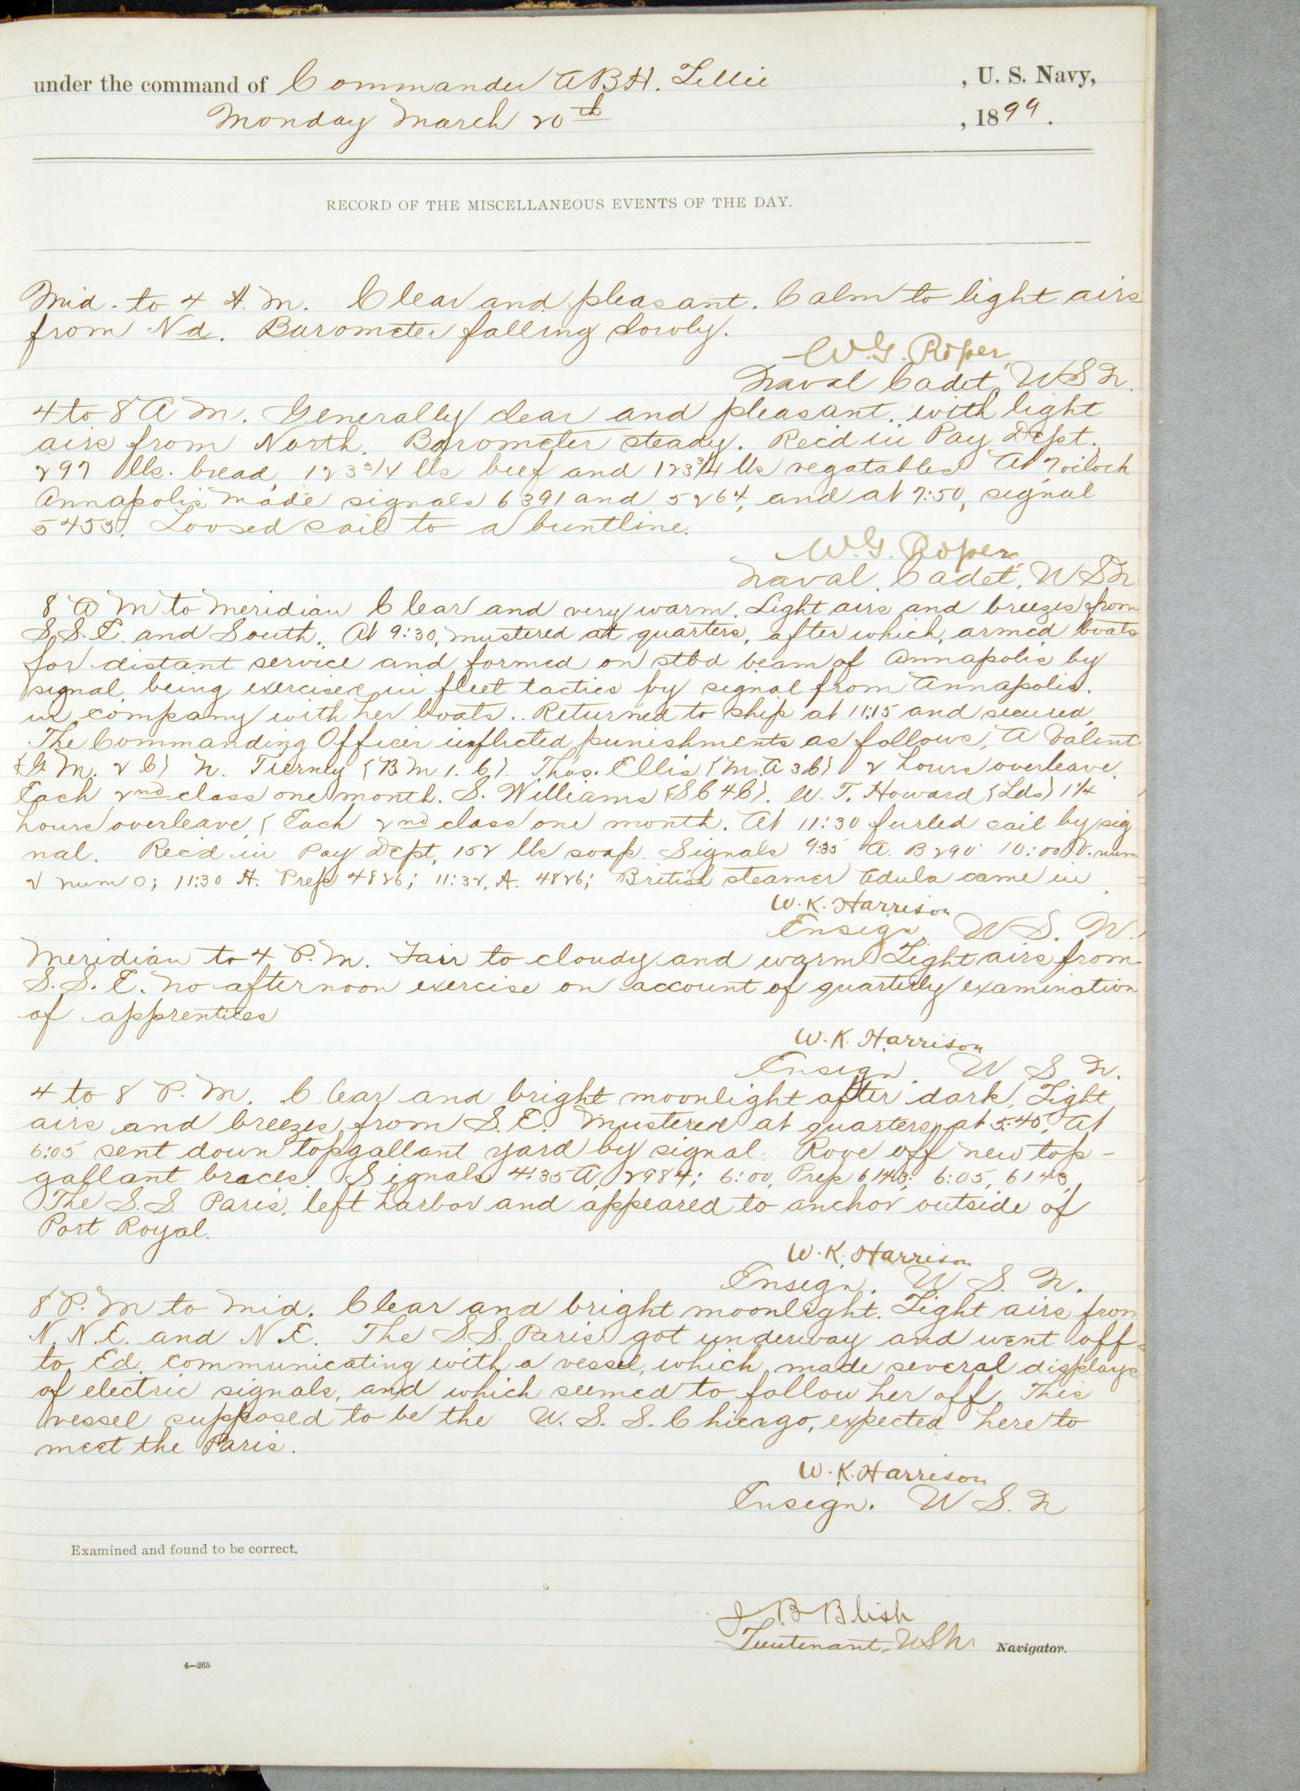 under the command of Commander A B H. Lillie , U. S. Navy,
Monday March 20th , 1899.
RECORD OF THE MISCELLANEOUS EVENTS OF THE DAY.
Mid. to 4 A. M. Clear and pleasant. Calm to light airs
from Nd. Barometer falling slowly.
W. G. Roper,
Naval Cadet, U S N.
4 to 8 A M. Generally clear and pleasant, with light
airs from North. Barometer steady. Rec'd in Pay Dept.
297 lbs. bread, 123 3/4 lbs beef and 123 3/4 lbs vegatables At 7 o'clock
Annapolis made signals 6391 and 5264, and at 7:50, signal
5453. Loosed sail to a buntline.
W. G. Roper,
Naval Cadet, U S N
8 A M to Meridian Clear and very warm. Light airs and breezes from
S. S. E. and South. At 9:30, mustered at quarters, after which, armed boats
for distant service and formed on stbd beam of Annapolis by
signal, being exercised in fleet tactics by signal from Annapolis.
in company with her boats.. Returned to ship at 11:15 and secured.
The Commanding Officer inflicted punishments as follows, A Valint
{G M. 2 C} N. Tierney {B M 1. C}. Thos. Ellis {M. A 3 C} 2 hours overleave.
Each 2nd class one month. S. Williams {S C 4 C}. W. T. Howard {Lds} 1 1/4
hours overleave, { Each 2nd class one month. At 11:30 furled sail by sig
nal. Rec'd in Pay Dept, 152 lbs soap. Signals 9:35 A. B 290 10:00 D. num
2 num 0; 11:30 A. Prep 4826; 11:32, A. 4826; British steamer Adula came in
W. K. Harrison
Ensign, U S. N.
Meridian to 4 P. M. Fair to cloudy and warm Light airs from
S. S. E. No afternoon exercise on account of quarterly examination
of apprentices
W. K. Harrison
Ensign, U S N.
4 to 8 P. M. Clear and bright moonlight after dark, Light
airs and breezes from S. E. Mustered at quarters, at 5:45, At
6:05 sent down topgallant yard by signal. Rove off new top-
gallant braces. Signals 4:35 A, 2984; 6:00, Prep 6143; 6:05, 6143,
The S. S Paris, left harbor and appeared to anchor outside of
Port Royal.
W. K. Harrison
Ensign. U S. N.
8 P. M to Mid. Clear and bright moonlight. Light airs from
N. N. E. and N. E. The S S. Paris got underway and went off
to Ed. communicating with a vessel, which, made several displays
of electric signals, and which seemed to follow her off, This
vessel supposed to be the U. S. S. Chicago, expected here to
meet the Paris.
W. K. Harrison
Ensign. U S. N
Examined and found to be correct.
J B Blish
Lieutenant, U S N. Navigator.
4—265